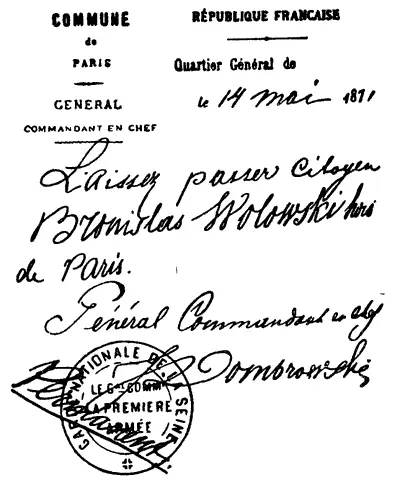 COMMUNE
de
PARIS
GENERAL
COMMANDANT EN CHEF
RÉPUBLIQUE FRANÇAISE
Quartier Général de
le 14 mai 1871
Laissez passer Citoyen
Bronislas Wolowski hors
de Paris.
Général Commandant en chef
Dombrowski
Permanent
GARDE NATIONALE DE LA SEINE
LE GAL COMMT
LA PREMIERE
ARMÉE